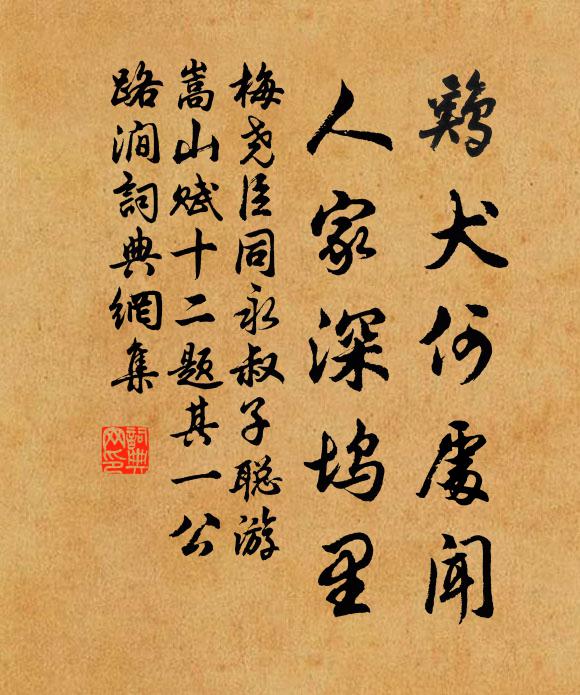 鷄犬何處闻
人家深坞里
梅尧臣同永叔子聪游
嵩山赋十二题其一公
路涧詞典網集
詞典
网印